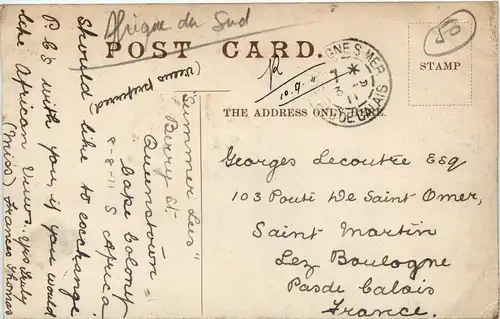 Afrique du Sud
50
POST CARD.
(views preferred)
R 10.9.11
GNE S MER
* 
3 - 9
11
DE CALAIS
STAMP
THE ADDRESS ONLY HERE.
"Summer Lea"
Berry St.
Queenstown
Cape Colony
8-8-11 S Africa
Should like to exchange
P. Cs with you, if you would
like African views. yrs truly
(Miss) Frances Thomas
Georges Lecoutre Esq
103 Pouté De Saint Omer,
Saint Martin
Lez Boulogne
Pas de Calais
France.